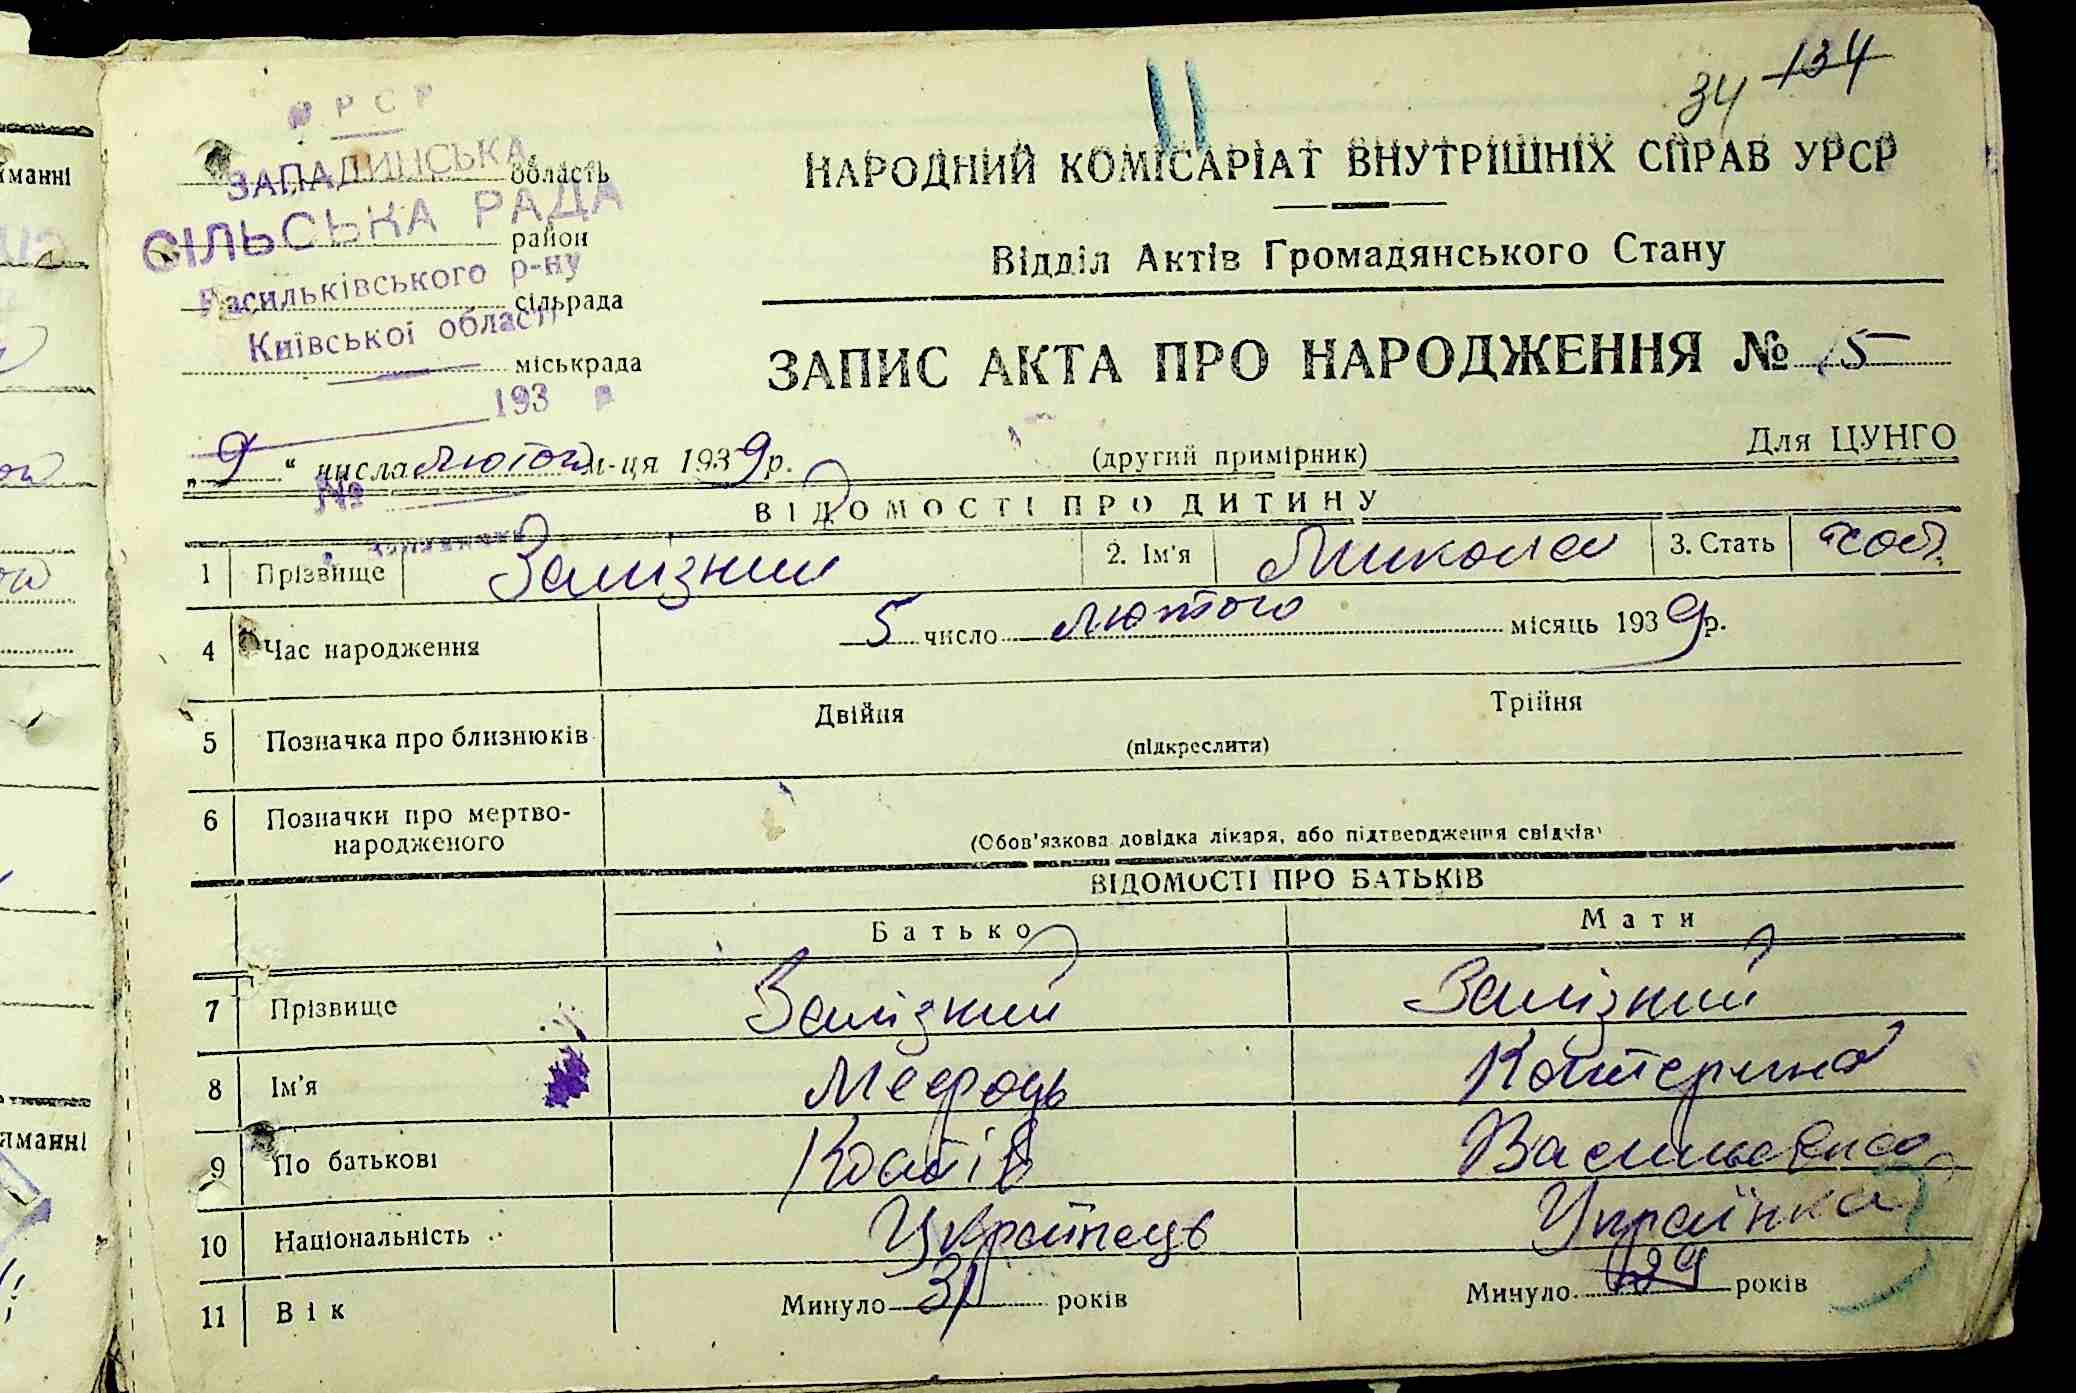 34 134
УРСР
ЗАПАДИНСЬКА область
СІЛЬСЬКА РАДА
район
Васильківського р-ну
сільрада
Київської області
міськрада
193 р
№
НАРОДНИЙ КОМІСАРІАТ ВНУТРІШНІХ СПРАВ УРСР
Відділ Актів Громадянського Стану
ЗАПИС АКТА ПРО НАРОДЖЕННЯ № 5
„9“ числа лютого м-ця 1939 р. (другий примірник) Для ЦУНГО
ВІДОМОСТІ ПРО ДИТИНУ
1 Прізвище Залізний 2. Ім'я Микола 3. Стать чол.
4 Час народження 5 число лютого місяць 1939 р.
5 Позначка про близнюків Двійня Трійня
(підкреслити)
6 Позначки про мертво-
народженого (Обов'язкова довідка лікаря, або підтвердження свідків)
ВІДОМОСТІ ПРО БАТЬКІВ
Батько Мати
7 Прізвище Залізний Залізний
8 Ім'я Мефодь Катерина
9 По батькові Костів Васильевна
10 Національність Українець Українка
11 Вік Минуло 31 років Минуло 29 років